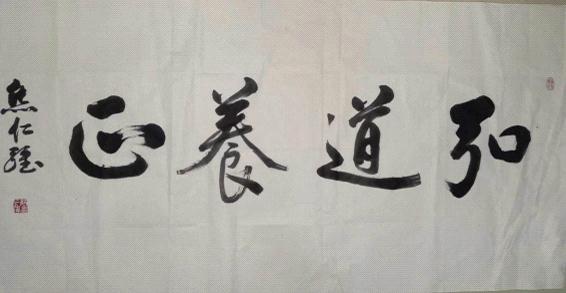 弘道養正
焦仁強